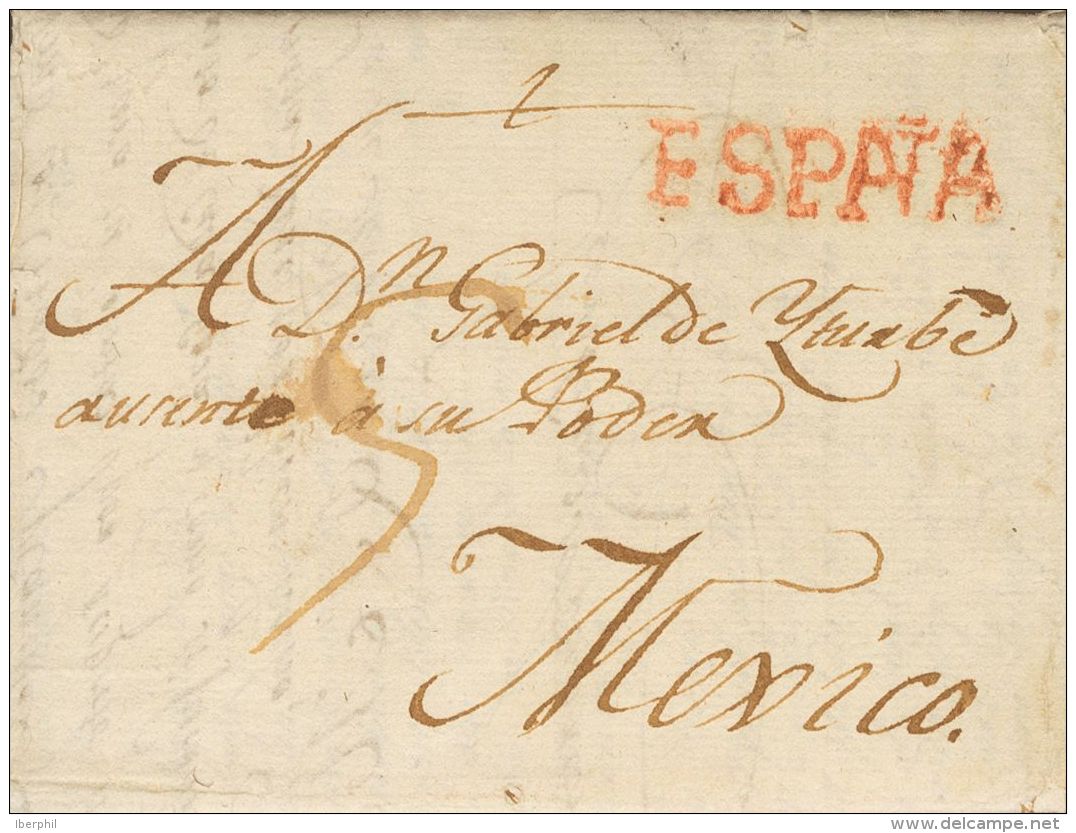 ESPAÑA
A
D.n Gabriel de Yturbe
ausente à su Poder
Mexico.
Iberphil
www.delcampe.net